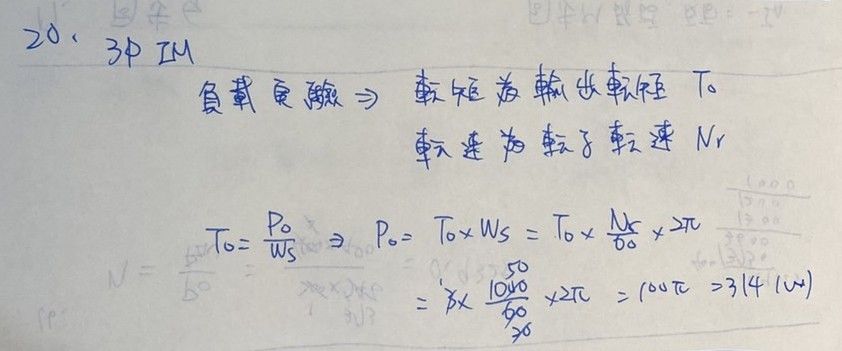 20. 3φ IM
負載実驗 ⇒ 転矩為輸出転矩 To
転速為転子転速 Nr
To = Po/Ws ⇒ Po = To × Ws = To × Ns/60 × 2π
= 3 × 1000/60 × 2π = 100π = 314 (W)